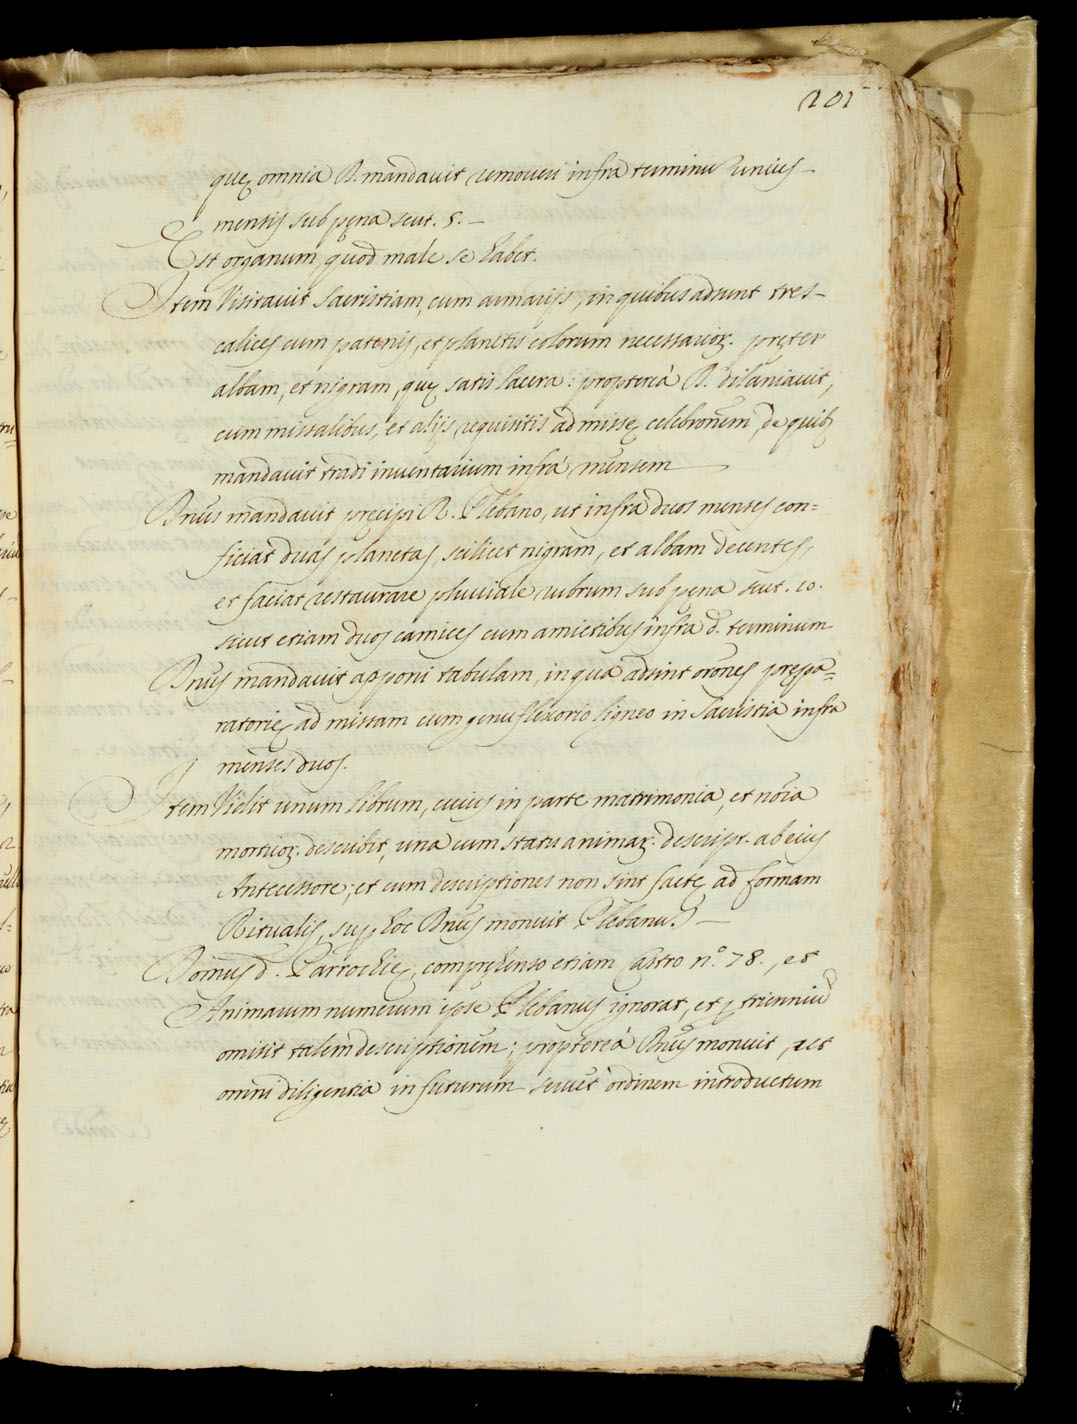 201
quę omnia D. mandavit removeri infra terminu unius
mensis sub pęna scut. 5.
Est organum, quod malè se habet.
Item Visitavit Sacristiam, cum armarijs, in quibus adsunt tres
calices cum patenis, et planetis colorum necessarior. pręter
albam, et nigram, quę satis lacera: proptereà D. dilaniavit,
cum missalibus, et alijs requisitis ad missę celebronem, de quib
mandavit tradi inventarium infrà mensem
Dnus mandavit pręcipi R. Plebano, ut infra duos menses con=
ficiat duas planetas, scilicet nigram, et albam decentes,
et faciat restaurare pluviale rubrum sub pęna scut. 10.
sicut etiam duos camices cum amictibus infra d. terminum
Dnus mandavit apponi tabulam, in qua adsint orones prępa=
ratorię ad missam cum genuflexorio ligneo in Sacristia infra
menses duos.
Item Vidit unum librum, cuius in parte matrimonia, et noia
mortuor. describit, una cum statu animar. descript. ab eius
Antecessore; et cum descriptiones non sint factę ad formam
Ritualis, sup hoc Dnus monuit Plebanu.
Domus d. Parrochię, compręhenso etiam Castro n.º 78., et
Animarum numerum ipse Plebanus ignorat, et p trienniu
omisit talem descriptionem; proptereà Dnus monuit, ut
omni diligentia in futurum servet ordinem introductum